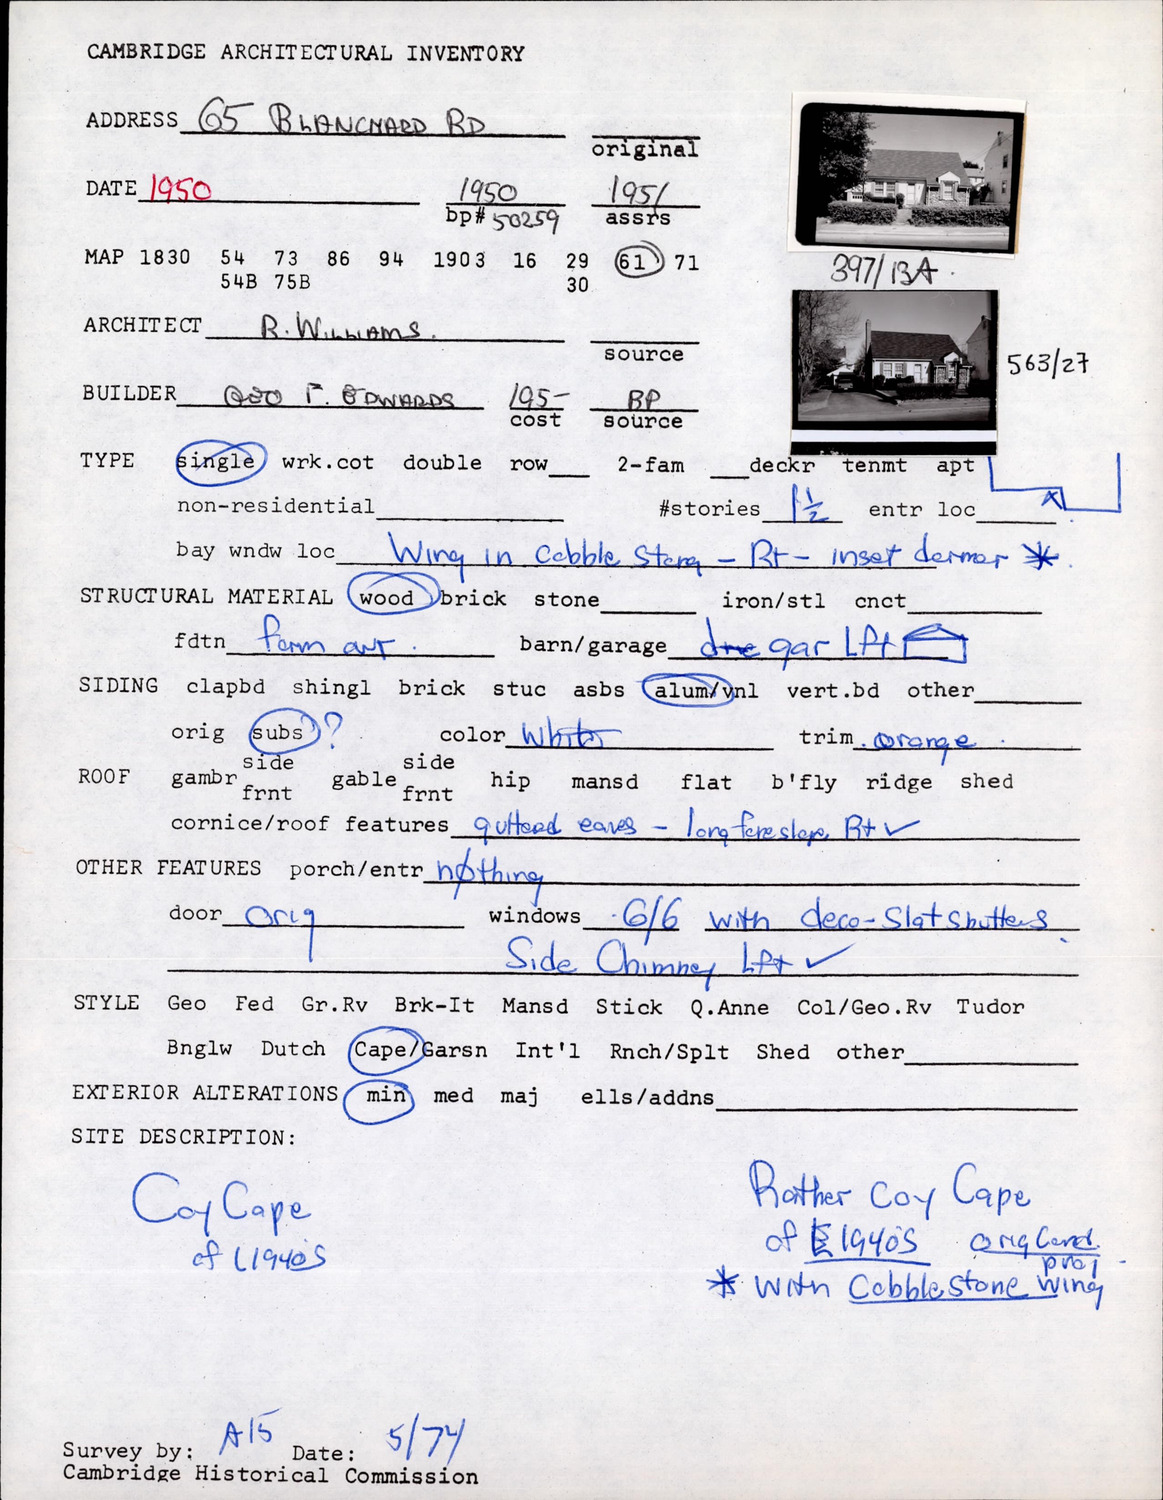 CAMBRIDGE ARCHITECTURAL INVENTORY
ADDRESS 65 BLANCHARD RD
original
DATE 1950 1950 1951
bp# 50259 assrs
MAP 1830 54 73 86 94 1903 16 29 61 71
54B 75B 30
397/13A
ARCHITECT R. WILLIAMS.
source
563/27
BUILDER GEO F. EDWARDS 195- BP
cost source
TYPE single wrk.cot double row___ 2-fam ___deckr tenmt apt
non-residential #stories 1½ entr loc X
bay wndw loc Wing in Cobble Stone – Rt – inset dormer *
STRUCTURAL MATERIAL wood brick stone iron/stl cnct
fdtn barn/garage one gar Lft
SIDING clapbd shingl brick stuc asbs alum/vnl vert.bd other
orig subs ? color White trim orange
ROOF gambr side frnt gable side frnt hip mansd flat b'fly ridge shed
cornice/roof features guttered eaves – long foreslope Rt ✓
OTHER FEATURES porch/entr nothing
door orig windows 6/6 with deco-Slat shutters
Side Chimney Lft ✓
STYLE Geo Fed Gr.Rv Brk-It Mansd Stick Q.Anne Col/Geo.Rv Tudor
Bnglw Dutch Cape/Garsn Int'l Rnch/Splt Shed other
EXTERIOR ALTERATIONS min med maj ells/addns
SITE DESCRIPTION:
Coy Cape
of L1940's
Rather Coy Cape
of 1940's orig Cond.
* with Cobblestone wing
Survey by: A15 Date: 5/74
Cambridge Historical Commission